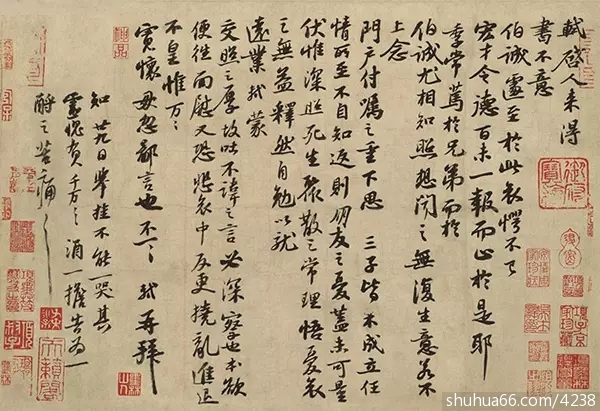 軾啓人来得
書不意
伯誠遽至於此哀愕不已
宏才令德百未一報而止於是耶
季常篤於兄弟而於
伯誠尤相知照想聞之無復生意若不
上念
門户付囑之重下思三子皆未成立任
情所至不自知返則朋友之憂蓋未可量
伏惟深照死生聚散之常理悟憂哀
之無益釋然自勉以就
遠業軾蒙
交照之厚故吐不諱之言必深察也本欲
便往面慰又恐悲哀中反更撓亂進退
不皇惟万〻
寬懷毋忽鄙言也不一一軾再拜
知廿九日舉挂不能一哭其
靈愧負千万〻酒一擔告為一
酹之苦痛〻
shuhua66.com/4238